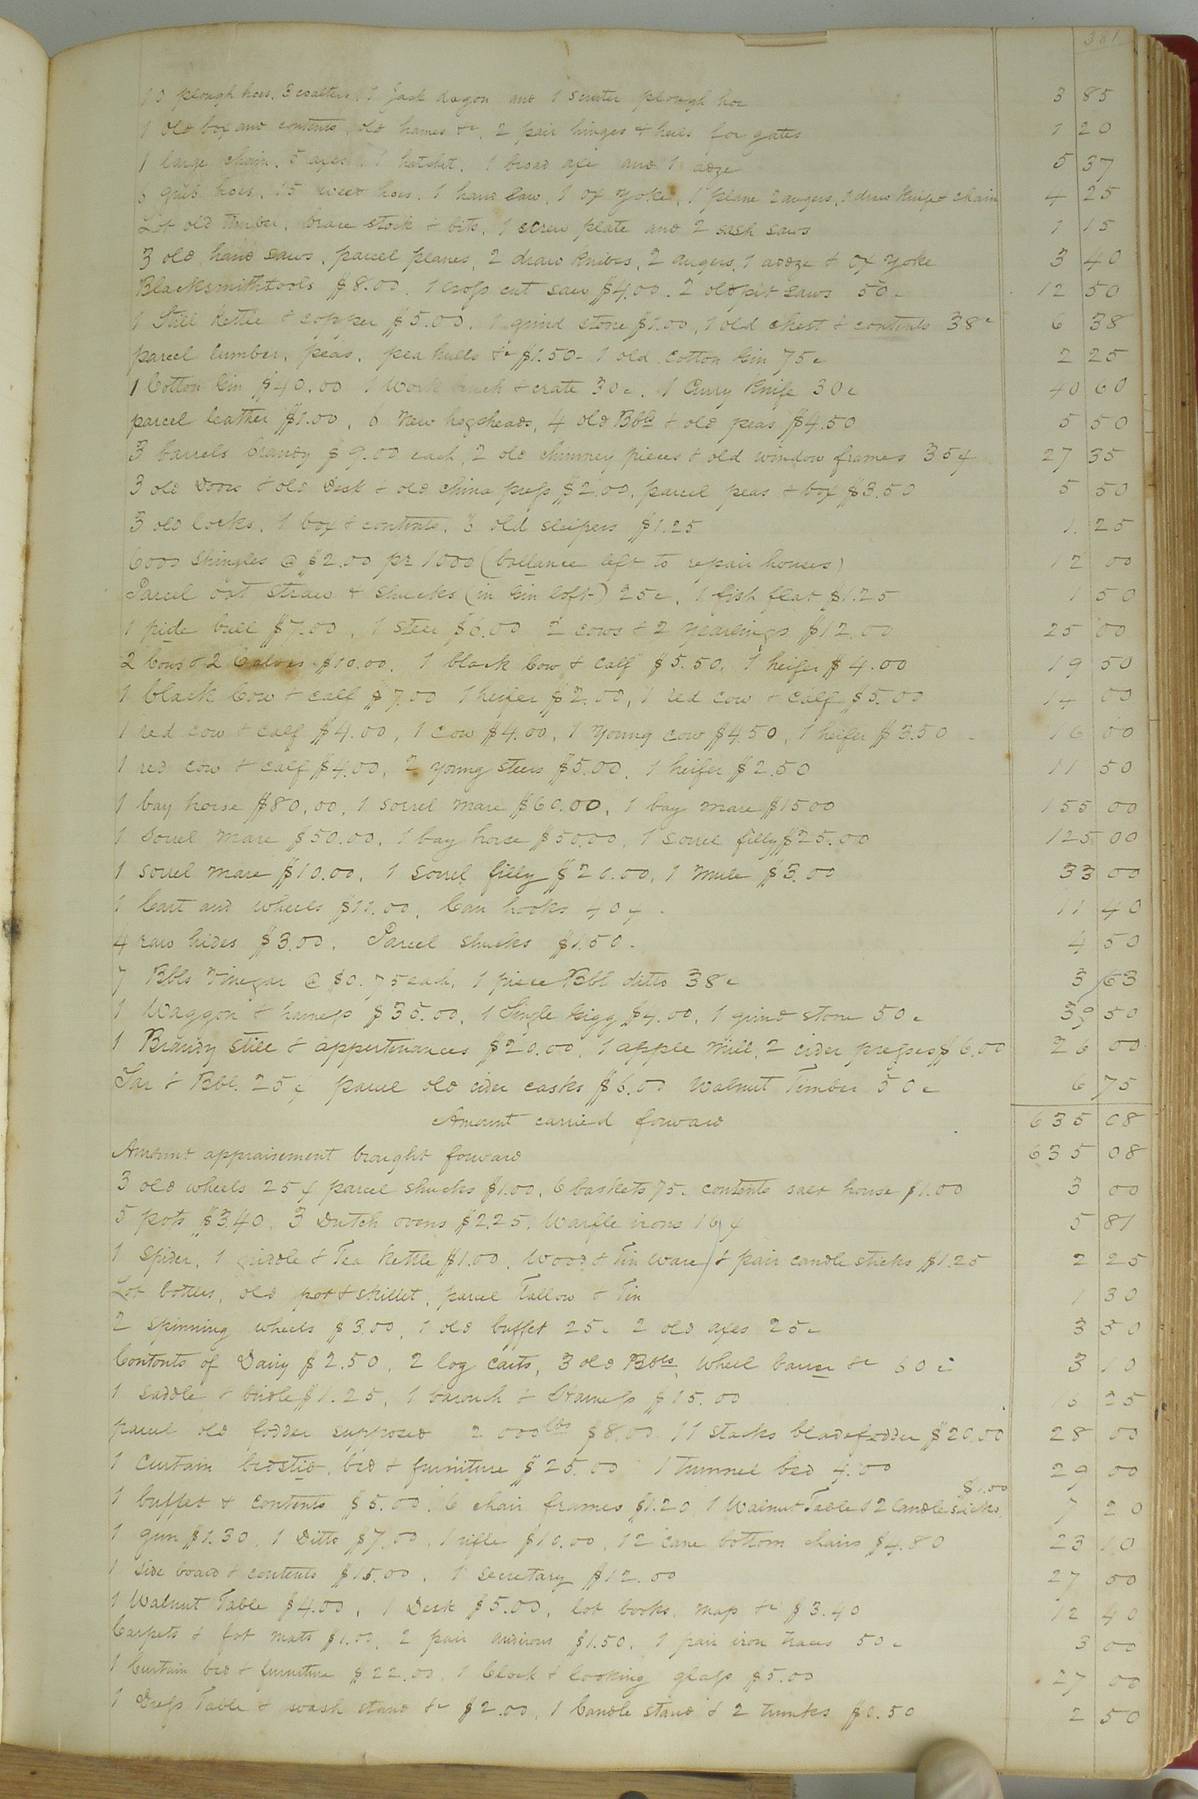 381
10 plough hoes, 3 coalters, 1 Jack dagon and 1 scooter plough hoe 3 85
1 old box and contents, old hames &c, 2 pair hinges & heels for gates 1 20
1 large chain, 5 axes, 1 hatchet, 1 broad axe and 1 adze 5 37
grub hoes, 15 weed hoes, 1 hand saw, 1 ox yoke, 1 plane 2 augers, 1 draw knife & chain 4 25
Lot old timber, brace stock & bits, 1 screw plate and 2 sash saws 1 15
3 old hand saws, parcel planes, 2 draw knives, 2 augers, 1 addze & ox yoke 3 40
Blacksmithstools $8.00. 1 cross cut saw $4.00. 2 old pit saws 50c 12 50
1 Still Kettle & copper $5.00, 1 grind stone $1.00, 1 old chest & contents 38c 6 38
parcel lumber, peas, pea hulls &c $1.50. 1 old cotton Gin 75c 2 25
1 Cotton Gin $40.00 1 Work bench & crate 30c. 1 Curry Knife 30c 40 60
parcel leather $1.00, 6 New hogsheads, 4 old Bbls & old peas $4.50 5 50
3 barrels brandy $9.00 each, 2 old chimney pieces & old window frames 35c 27 35
3 old Doors & old Desk & old china press $2.00, parcel peas & box $3.50 5 50
3 old locks, 1 box & contents, 3 old sleipers $1.25 1. 25
6000 Shingles @ $2.00 pr 1000 (ballance left to repair houses) 12 00
Parcel oat straw & shucks (in Gin loft) 25c, 1 fish flat $1.25 1 50
1 pide bull $7.00, 1 Steer $6.00 2 cows & 2 yearlings $12.00 25 00
2 Cows & 2 Calves $10.00, 1 black Cow & calf $5.50, 1 heifer $4.00 19 50
1 black Cow & calf $7.00 1 heifer $2.00, 1 red cow & calf $5.00 14 00
1 red cow & calf $4.00, 1 cow $4.00, 1 young cow $4.50, 1 heifer $3.50 16 00
1 red cow & calf $4.00, 2 young steers $5.00, 1 heifer $2.50 11 50
1 bay horse $80.00, 1 sorrel mare $60.00, 1 bay mare $15.00 155 00
1 Sorrel mare $50.00, 1 bay horse $50.00, 1 sorrel filly $25.00 125 00
1 sorrel mare $10.00, 1 sorrel filly $20.00, 1 mule $3.00 33 00
1 Cart and wheels $11.00, Can hooks 40c. 11 40
4 raw hides $3.00. Parcel shucks $1.50. 4 50
7 Bbls Vinegar @ $0.75 each, 1 piece Bbl ditto 38c 3 63
1 Waggon & harness $35.00, 1 Single Gigg $4.00, 1 grind stone 50c 39 50
1 Brandy still & appertinances $20.00, 1 apple mill, 2 cider presses $6.00 26 00
Tar & Bbl. 25c parcel old cider casks $6.00 Walnut Timber 50c 6 75
Amount carried forward 635 08
Amount appraisement brought forward 635 08
3 old wheels 25c parcel shucks $1.00, 6 baskets 75c contents salt house $1.00 3 00
5 pots $3.40, 3 Dutch ovens $2.25, Warfle irons 16c 5 81
1 Spider, 1 griddle & Tea Kettle $1.00, Wood & Tin Ware & pair candle sticks $1.25 2 25
Lot bottles, old pot & skillet, parcel Tallow & Tin 1 30
2 spinning wheels $3.00, 1 old buffet 25c 2 old axes 25c 3 50
Contents of Dairy $2.50, 2 log carts, 3 old Bbls, Wheel barrow &c 60c 3 10
1 saddle & bridle $1.25, 1 barouch & Harness $15.00 16 25
parcel old fodder supposed 2000 lbs $8.00 11 stacks bladefodder $20.00 28 00
1 Curtain bedsted, bed & furniture $25.00 1 Trunnel bed 4.00 29 00
1 buffet & contents $5.00, 6 chair frames $1.20 1 Walnut Table & 2 Candlesticks $1.00 7 20
1 gun $1.30, 1 Ditto $7.00, 1 rifle $10.00, 12 cane bottom chairs $4.80 23 10
1 side board & contents $15.00, 1 Secretary $12.00 27 00
1 Walnut Table $4.00, 1 Desk $5.00, lot books, map &c $3.40 12 40
Carpets & fot mats $1.00, 2 pair andirons $1.50, 1 pair iron traces 50c 3 00
1 Curtain bed & furniture $22.00, 1 Clock & looking glass $5.00 27 00
1 Dress Table & wash stand &c $2.00, 1 Candle stand & 2 trunks $0.50 2 50